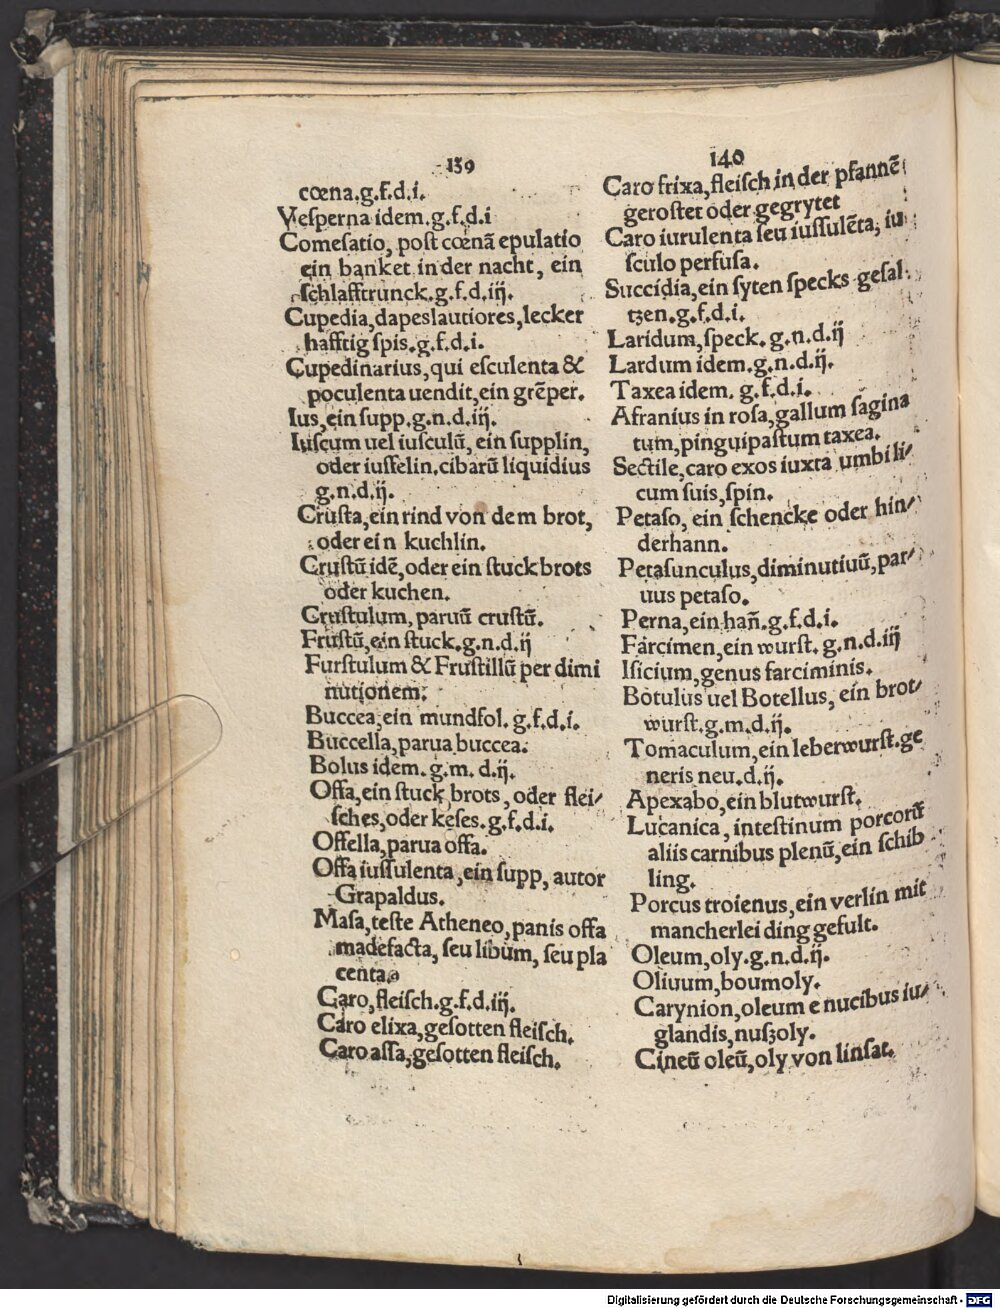 139
cœna.g.f.d.i.
Veſperna idem.g.f.d.i
Comeſatio, poſt cœnã epulatio
ein banket in der nacht, ein
ſchlafftrunck.g.f.d.iij.
Cupedia,dapeslautiores,lecker
hafftig ſpis.g.f.d.i.
Cupedinarius,qui eſculenta &
poculenta uendit,ein grẽper.
Ius,ein ſupp.g.n.d.iij.
Iuſcum uel iuſculũ, ein ſupplin,
oder iuſſelin,cibarũ liquidius
g.n.d.ij.
Cruſta,ein rind von dem brot,
oder ein kuchlin.
Cruſtũ idẽ,oder ein ſtuck brots
oder kuchen.
Cruſtulum, paruũ cruſtũ.
Fruſtũ,ein ſtuck.g.n.d.ij
Furſtulum & Fruſtillũ per dimi
nutionem.
Buccea,ein mundfol. g.f.d.i.
Buccella,parua buccea.
Bolus idem.g.m. d.ij.
Offa,ein ſtuck brots, oder flei⸗
ſches,oder keſes.g.f.d.i.
Offella,parua offa.
Offa iuſſulenta,ein ſupp, autor
Grapaldus.
Maſa,teſte Atheneo,panis offa
madefacta, ſeu libum, ſeu pla
centa.
Caro,fleiſch.g.f.d.iij.
Caro elixa,geſotten fleiſch.
Caro aſſa,geſotten fleiſch.
140
Caro frixa,fleiſch in der pfannẽ
geroſtet oder gegrytet
Caro iurulenta ſeu iuſſulẽta, iu
ſculo perfuſa.
Succidia,ein ſyten ſpecks geſal⸗
tzen.g.f.d.i.
Laridum,ſpeck. g.n.d.ij
Lardum idem.g.n.d.ij.
Taxea idem. g.f.d.i.
Afranius in roſa,gallum ſagina
tum,pinguipaſtum taxea.
Sectile,caro exos iuxta umbili⸗
cum ſuis,ſpin.
Petaſo, ein ſchencke oder hin⸗
derhann.
Petaſunculus,diminutiuũ,par⸗
uus petaſo.
Perna,ein hañ.g.f.d.i.
Farcimen,ein wurſt. g.n.d.iij
Iſicium,genus farciminis.
Botulus uel Botellus, ein brot⸗
wurſt.g.m.d.ij.
Tomaculum,ein leberwurſt.ge
neris neu.d.ij.
Apexabo,ein blutwurſt.
Lucanica, inteſtinum porcorũ
aliis carnibus plenũ,ein ſchib
ling.
Porcus troienus,ein verlin mit
mancherlei ding gefult.
Oleum,oly.g.n.d.ij.
Oliuum,boumoly.
Carynion,oleum e nucibus iu⸗
glandis,nuſzoly.
Cineũ oleũ,oly von linſat.
Digitalisierung gefördert durch die Deutsche Forschungsgemeinschaft - DFG